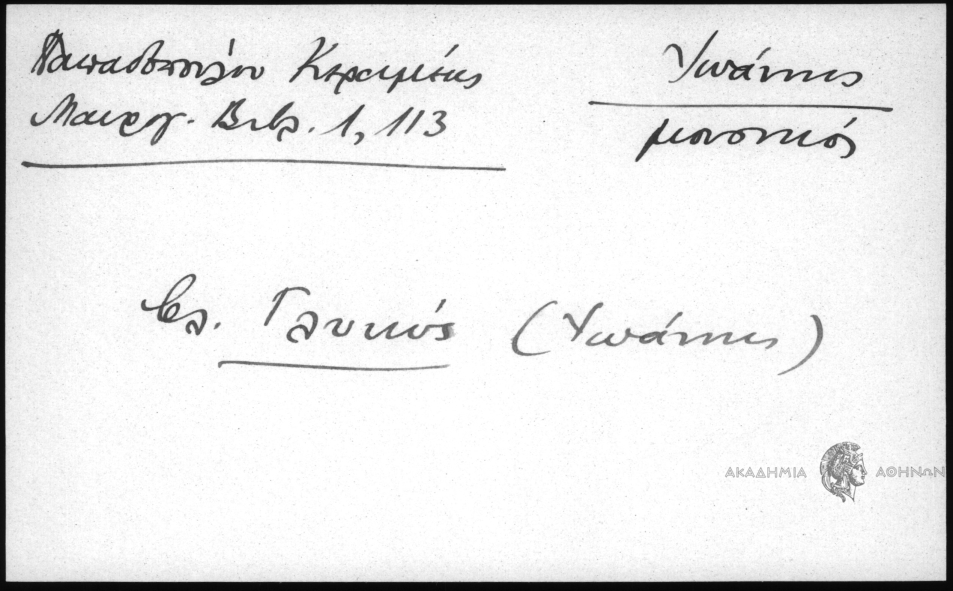 Παπαδοπούλου Κεραμέως
Μαυρογ. Βιβλ. 1, 113
Ἰωάννης
μουσικός
βλ. Γλυκύς (Ἰωάννης)
ΑΚΑΔΗΜΙΑ ΑΘΗΝΩΝ